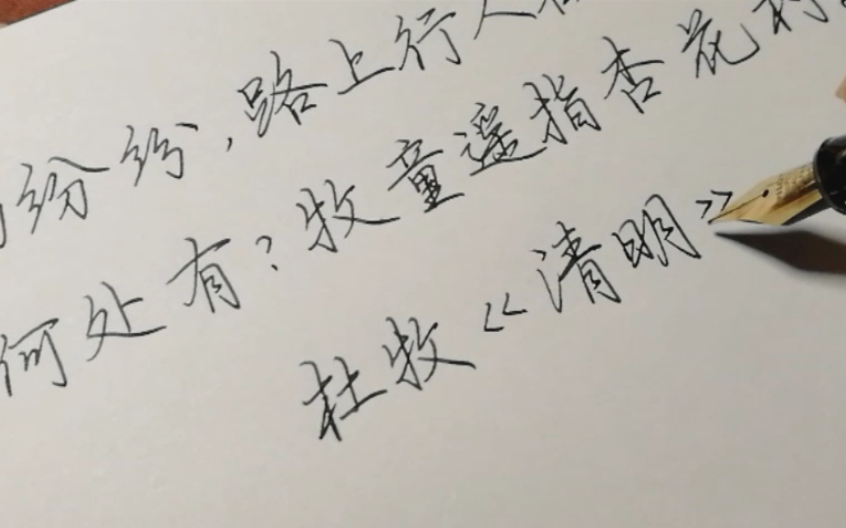 纷纷,路上行人
何处有?牧童遥指杏花村
杜牧《清明》